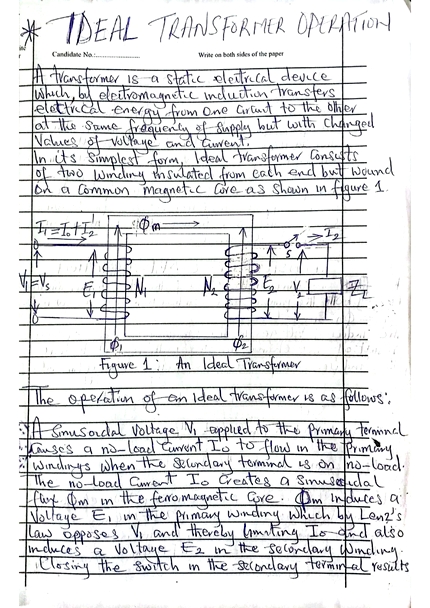 * IDEAL TRANSFORMER OPERATION
Candidate No.: Write on both sides of the paper
A transformer is a static electrical device
which, by electromagnetic induction transfers
electrical energy from one circuit to the other
at the same frequency of supply but with changed
values of voltage and current.
In its simplest form, Ideal transformer consists
of two winding insulated from each end but wound
on a common magnetic core as shown in figure 1.
I1 = I0 + I2' Φm I2
S
V1 = Vs E1 N1 N2 E2 V2 ZL
Φ1 Φ2
Figure 1: An Ideal Transformer
The operation of an Ideal transformer is as follows:
A Sinusoidal Voltage V1 applied to the primary terminal
causes a no-load current I0 to flow in the primary
windings when the secondary terminal is on no-load.
The no-load current I0 creates a sinusoidal
flux Φm in the ferromagnetic core. Φm induces a
Voltage E1 in the primary winding which by Lenz's
law opposes V1 and thereby limiting I0 and also
induces a Voltage E2 in the secondary winding.
Closing the switch in the secondary terminal results